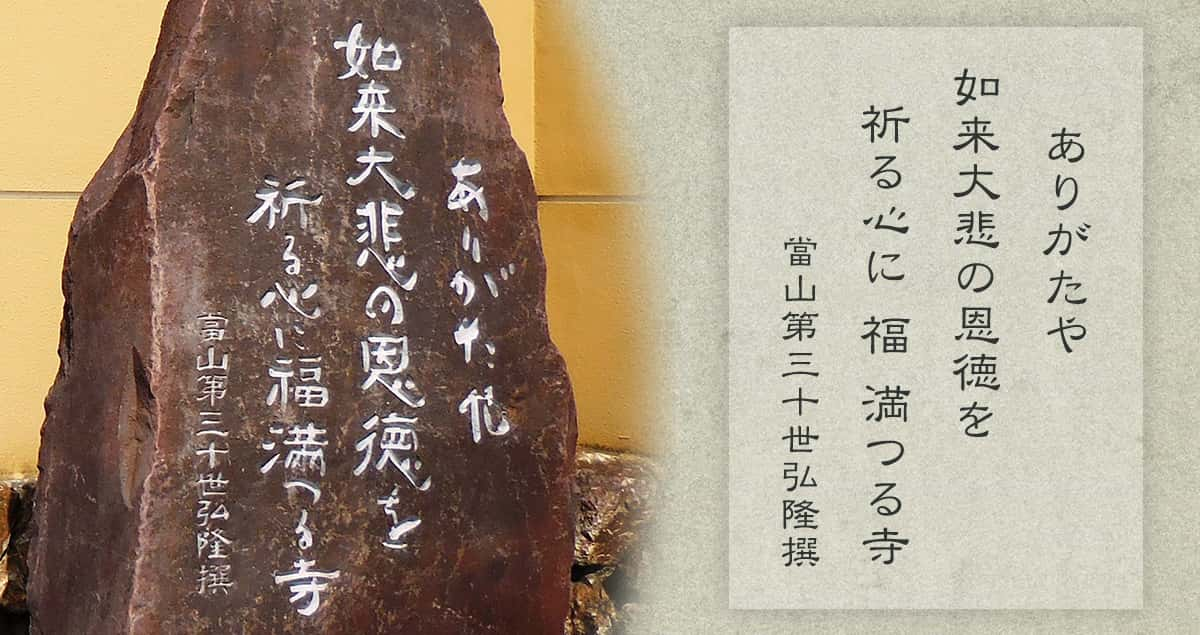 ありがた也
如来大悲の恩徳を
祈る心に福満つる寺
當山第三十世弘隆撰
ありがたや
如来大悲の恩徳を
祈る心に 福 満つる寺
當山第三十世弘隆撰